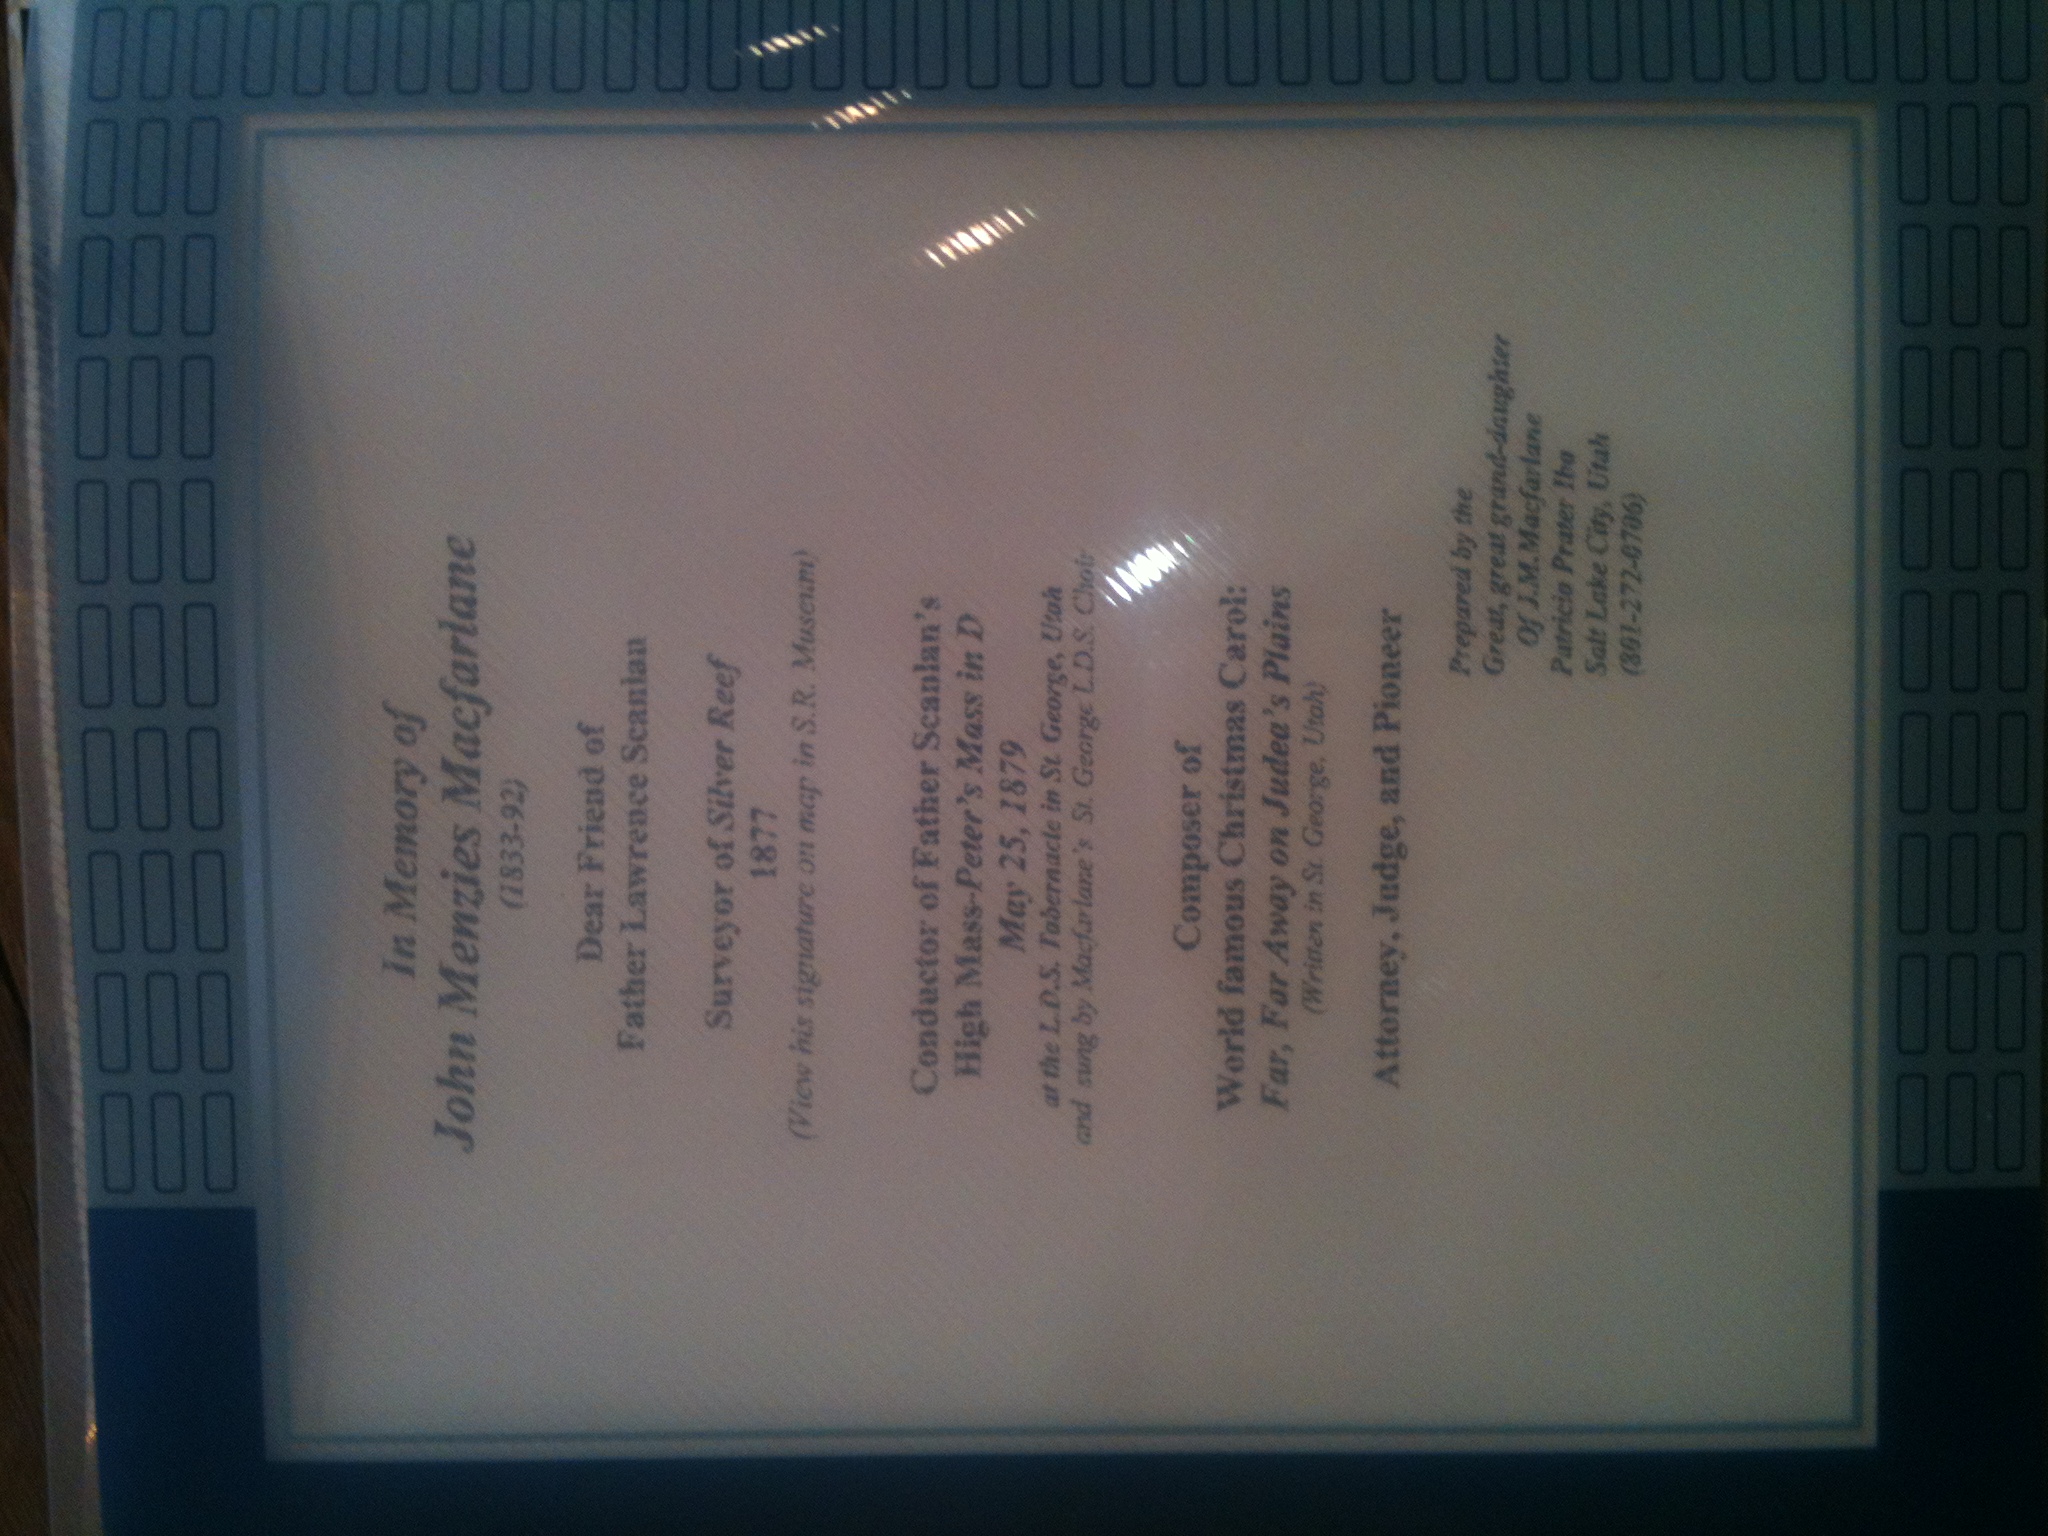 In Memory of
John Menzies Macfarlane
(1833-92)
Dear Friend of
Father Lawrence Scanlan
Surveyor of Silver Reef
1877
(View his signature on map in S.R. Museum)
Conductor of Father Scanlan's
High Mass-Peter's Mass in D
May 25, 1879
at the L.D.S. Tabernacle in St. George, Utah
and sung by Macfarlane's St. George L.D.S. Choir
Composer of
World famous Christmas Carol:
Far, Far Away on Judea's Plains
(Written in St. George, Utah)
Attorney, Judge, and Pioneer
Prepared by the
Great, great grand-daughter
Of J.M.Macfarlane
Patricio Prater
Salt Lake City, Utah
(801-272-0706)